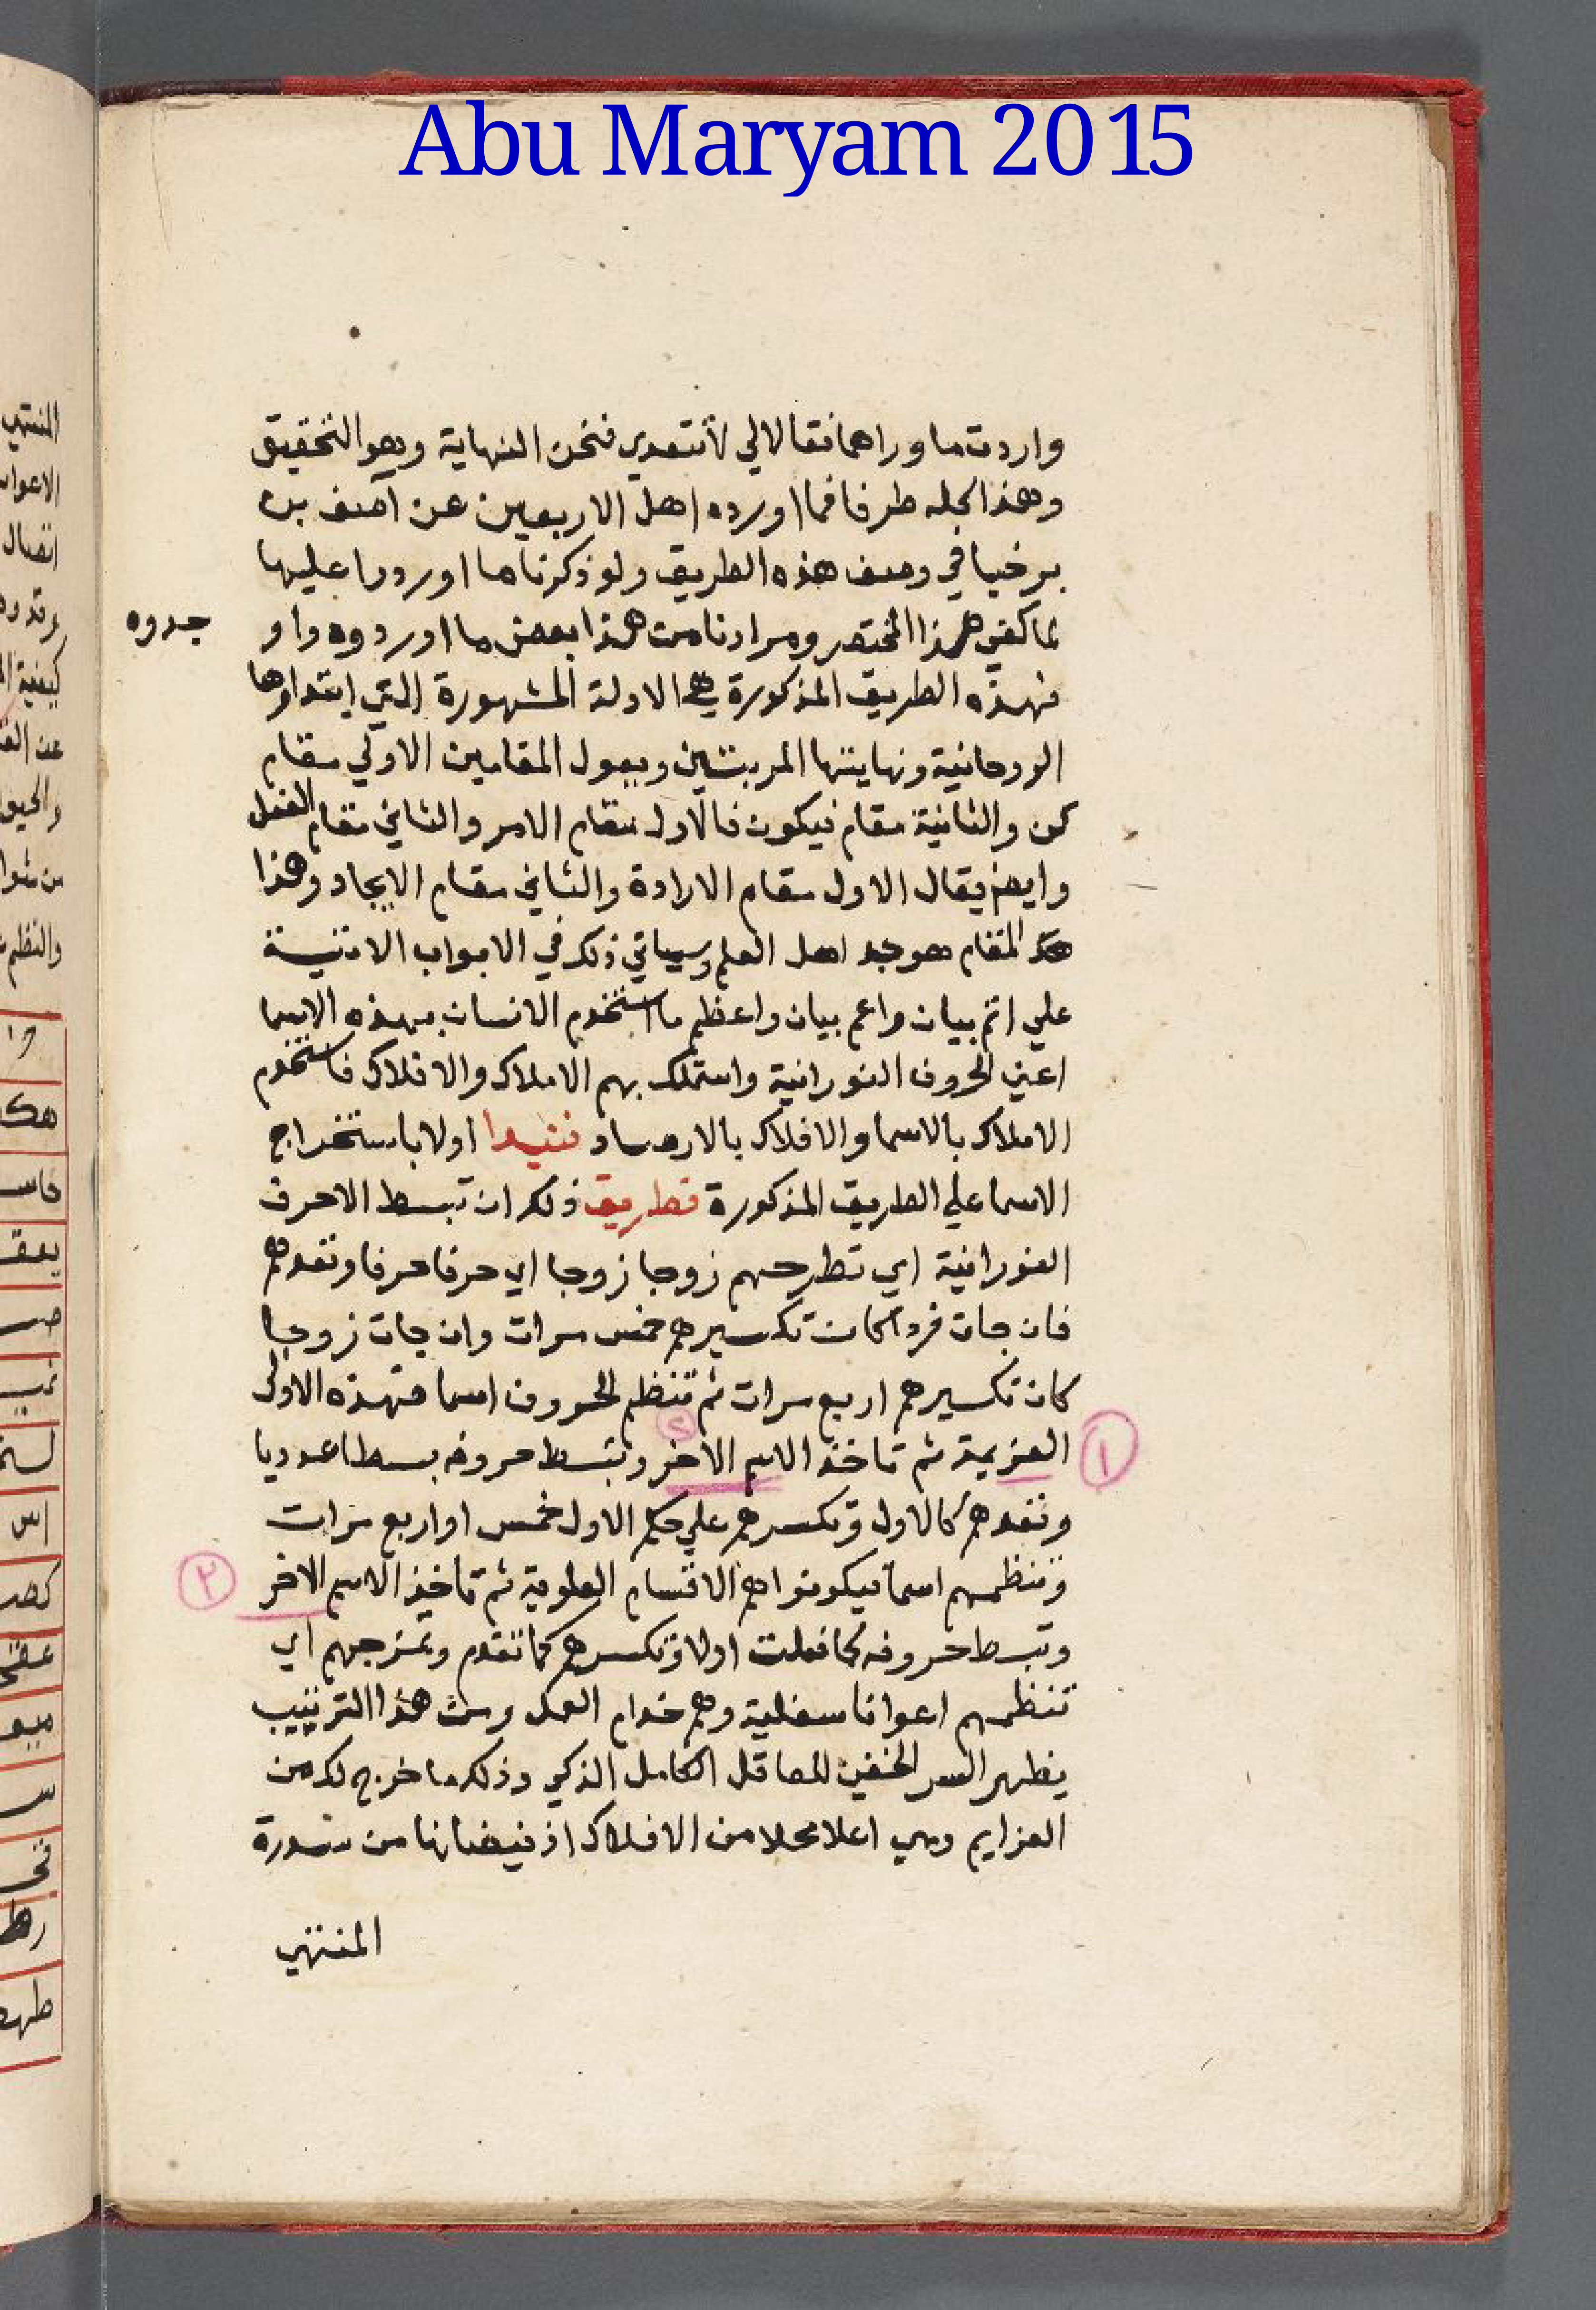 Abu Maryam 2015
واردت ما وراهما فقالا لي لا تتعدي فنحن النهاية وهو التحقيق
وهذا الجله طرفا فما اورده اهل الاربعين عن آصف بن
برخيا في وصف هذه الطريق ولو ذكرنا ما اوردوا عليها
لما كفي هذا المختصر ومرادنا من هذا بعض ما اوردوه واو
جدوه
فهذه الطريق المذكورة هي الادلة المشهورة التي ابتداوها
الروحانية ونهايتها المربتين ويعول المقامين الاولي مقام
كن والثانية مقام فيكون فالاول مقام الامر والثاني مقام الفعل
وايض يقال الاول مقام الارادة والثاني مقام الايجاد وهذا
المقام هو جد اهل العلم وسياتي ذلك في الابواب الاتية
علي اتم بيان واعم بيان واعظم ما استخدم الانسان بهذه الاسما
اعني الحروف النورانية واستملك بهم الاملاك والافلاك فاستخدم
الاملاك بالاسما والافلاك بالارصاد فنبدا اولا باستخراج
الاسما علي الطريق المذكورة فطريق ذلك ان تبسط الاحرف
النورانية اي تطرحهم زوجا زوجا اي حرفا حرفا وتعدهم
فان جات فردا كان تكسيرهم خمس مرات وان جات زوجا
كان تكسيرهم اربع مرات ثم تنظم الحروف اسما فهذه الاولي
١ العزيمة ثم تاخذ الاسم الاخر وتبسط حروفه بسطا عدديا
٢
وتعدهم كالاول وتكسرهم علي حكم الاول خمس او اربع مرات
وتنظمهم اسما فيكونوا هم الاقسام العلوية ثم تاخذ الاسم الاخر
٣
وتبسط حروفه كما فعلت اولا وتكسرهم كما تقدم وتمزجهم اي
تنظمهم اعوانا سفلية وهم خدام العمل ومن هذا الترتيب
يظهر السر الخفي للعاقل الكامل الذكي وذلك ما خرج لك من
العزايم وهي اعلا محلا من الافلاك اذ فيضانها من سدرة
المنتهي